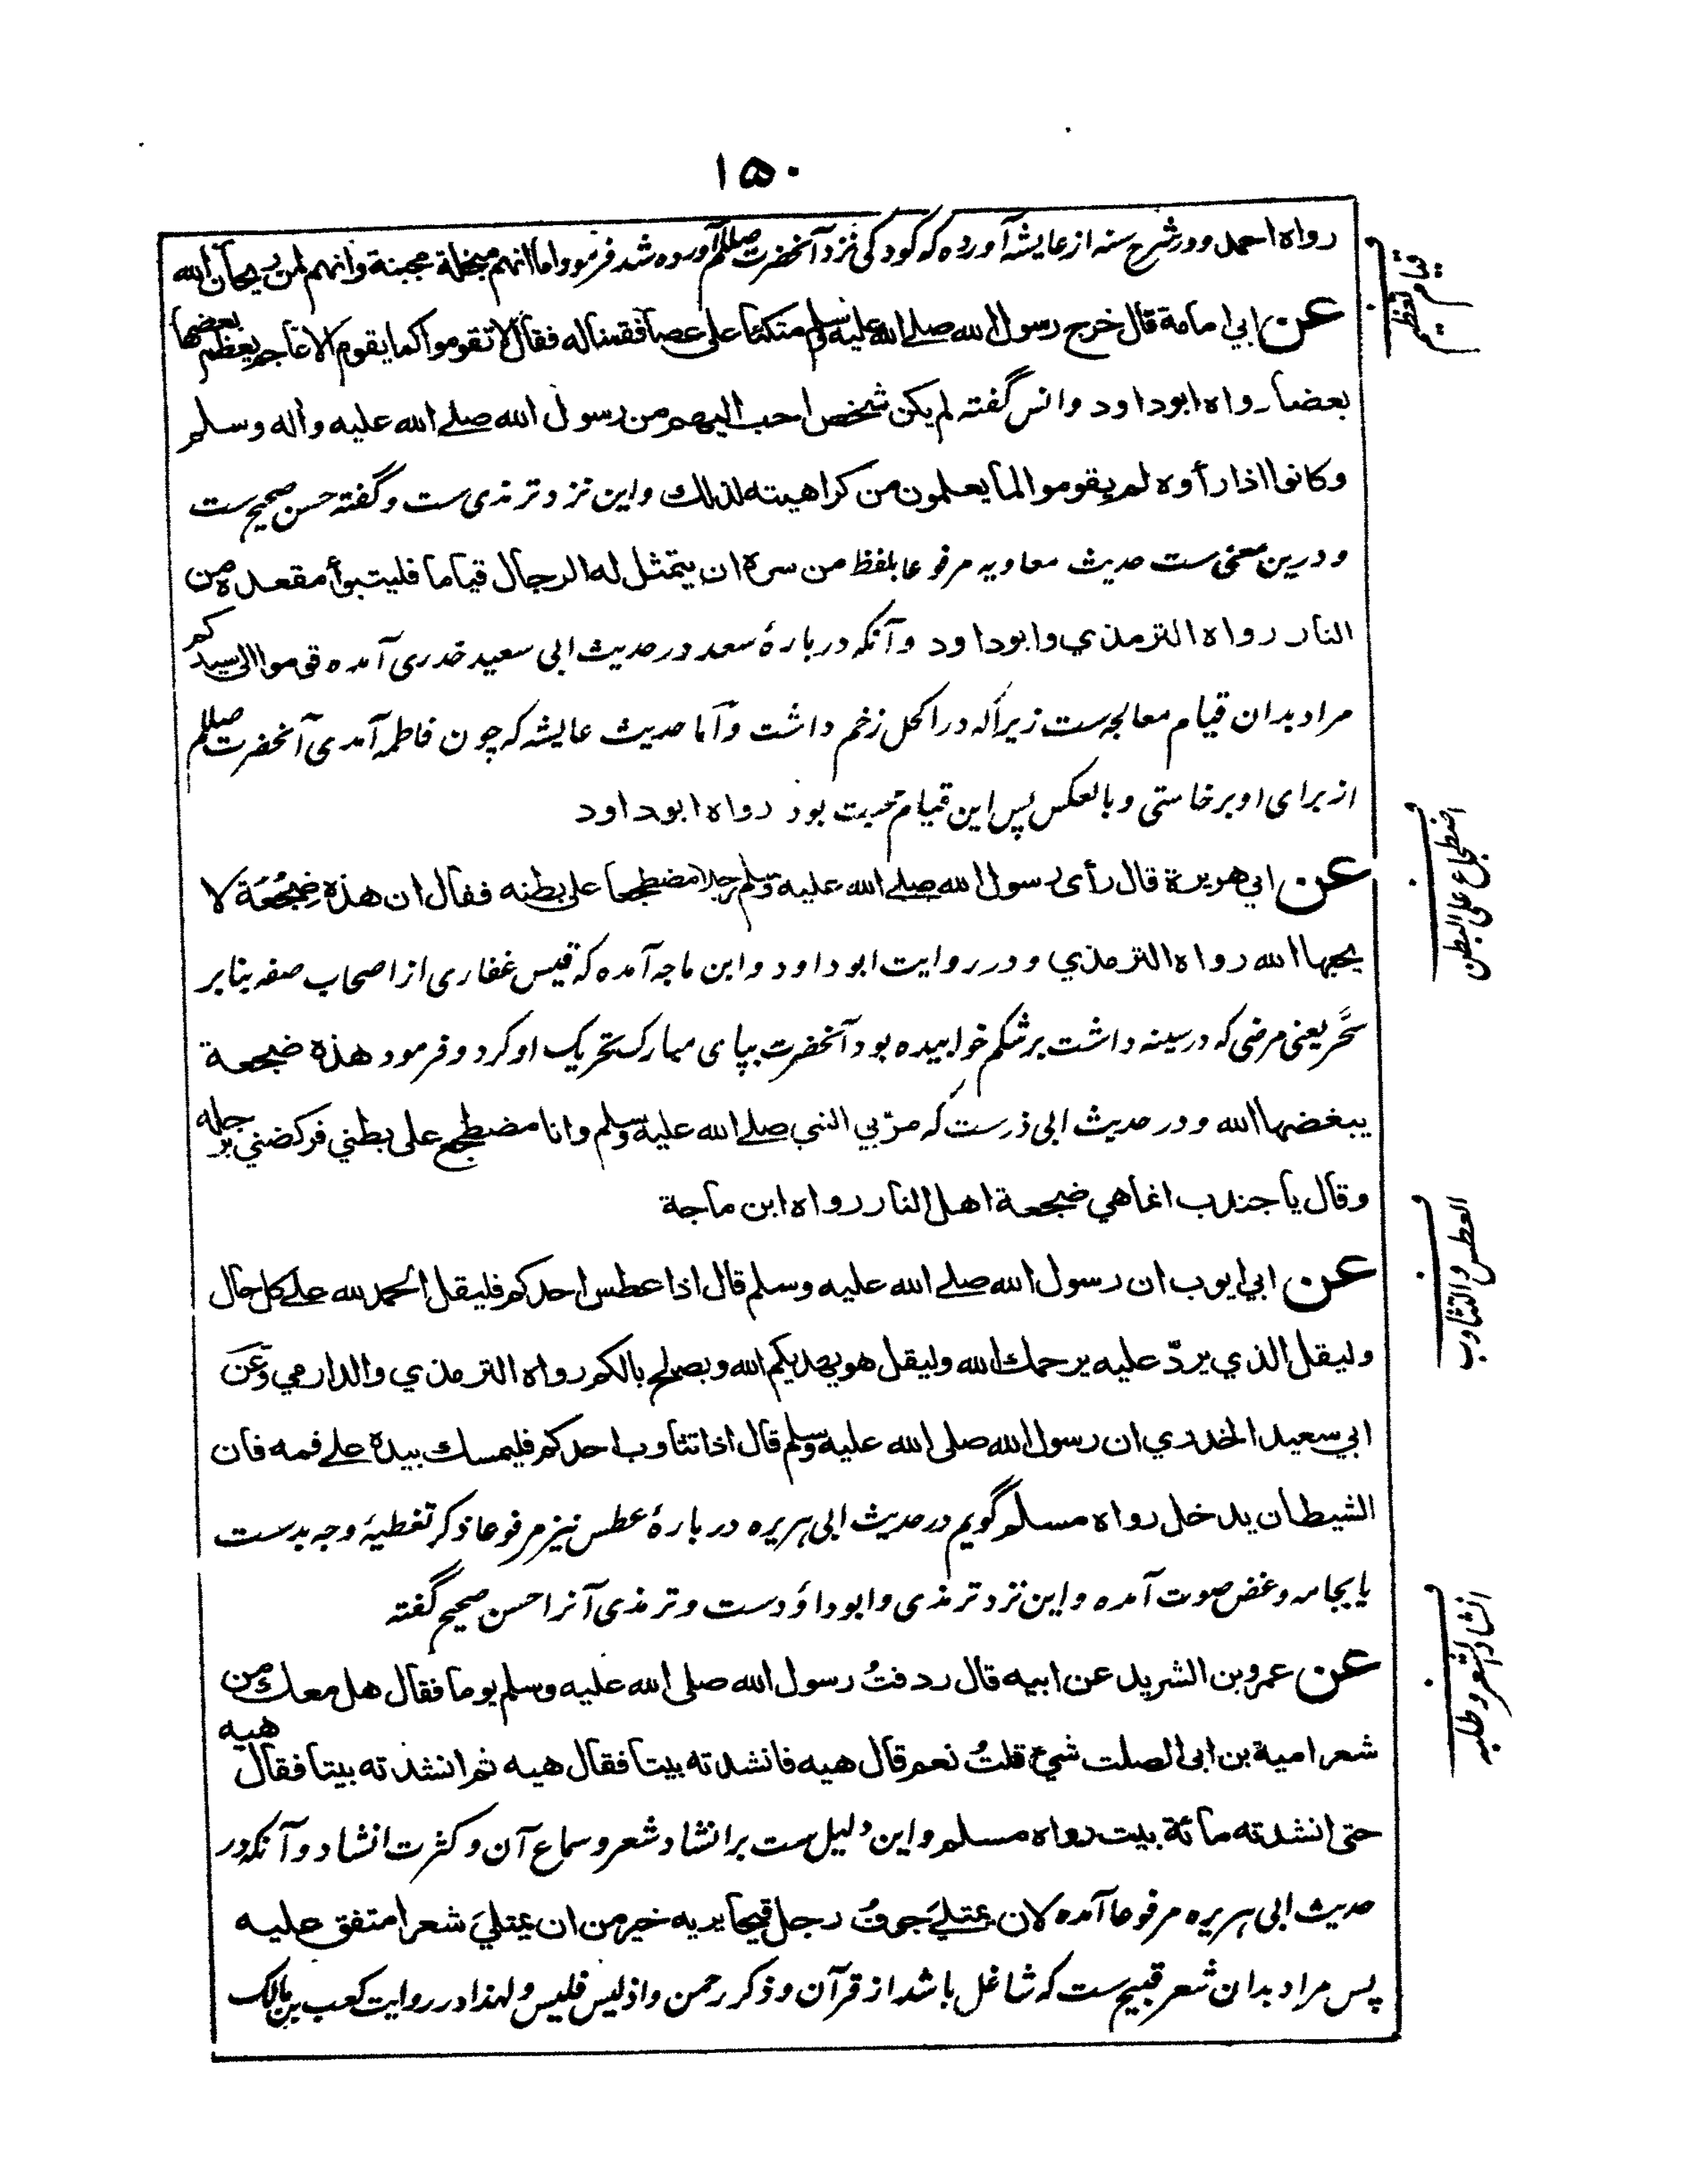 ۱۵۰
رواه احمد و در شرح سنه از عایشه آورده که کودکی نزد آنحضرت صللم آورده شد فرمود اما انهم مبخلة مجبنة وانهم لمن ریحان الله
عن ابي امامة قال خرج رسول الله صلے الله علیه وسلم متکئا علی عصا فقمنا له فقال لا تقوموا کما یقوم الاعاجم یعظم بعضها
بعضا رواه ابوداود و انس گفته لم یکن شخص احب الیهم من رسول الله صلے الله علیه واله وسلم
وکانوا اذا رأوه لم یقوموا لما یعلمون من کراهیته لذلك و این نزد ترمذی ست و گفته حسن صحیح ست
و درین معنی ست حدیث معاویه مرفوعا بلفظ من سره ان یتمثل له الرجال قیاما فلیتبوأ مقعده من
النار رواه الترمذي وابوداود و آنکه در بارۀ سعد در حدیث ابی سعید خدری آمده قوموا الی سیدکم
مراد بدان قیام معالجه ست زیراکه در اکحل زخم داشت و آما حدیث عایشه که چون فاطمه آمدی آنحضرت صللم
از برای او برخاستی و بالعکس پس این قیام محبت بود رواه ابوداود
عن ابي هریرة قال رأی رسول الله صلے الله علیه وسلم رجلا مضطجعا علی بطنه فقال ان هذه ضجعة لا
یحبها الله رواه الترمذي و در روایت ابوداود و ابن ماجه آمده که قیس غفاری از اصحاب صفه بنابر
سحر یعنی مرضی که در سینه داشت بر شکم خوابیده بود آنحضرت بپای مبارک تحریک او کرد و فرمود هذه ضجعة
یبغضها الله و در حدیث ابی ذر ست که مرّ بي النبي صلے الله علیه وسلم وانا مضطجع علی بطني فرکضني برجله
وقال یا جندب انما هي ضجعة اهل النار رواه ابن ماجة
عن ابي ایوب ان رسول الله صلے الله علیه وسلم قال اذا عطس احدکم فلیقل الحمد لله علے کل حال
ولیقل الذي یردّ علیه یرحمك الله ولیقل هو یهدیکم الله ویصلح بالکم رواه الترمذي والدارمي وعن
ابي سعید الخدري ان رسول الله صلی الله علیه وسلم قال اذا تثاوب احدکم فلیمسك بیده علے فمه فان
الشیطان یدخل رواه مسلم گویم در حدیث ابی هریره در بارۀ عطس نیز مرفوعا ذکر تغطیۀ وجه بدست
یا بجامه و غض صوت آمده و این نزد ترمذی و ابوداؤد ست و ترمذی آنرا حسن صحیح گفته
عن عمرو بن الشرید عن ابیه قال ردفتُ رسول الله صلی الله علیه وسلم یوما فقال هل معك من
شعر امیة بن ابی الصلت شيء قلتُ نعم قال هیه فانشدته بیتا فقال هیه ثم انشدته بیتا فقال هیه
حتی انشدته مائة بیت رواه مسلم و این دلیل ست بر انشاد شعر و سماع آن و کثرت انشاد و آنکه در
حدیث ابی هریره مرفوعا آمده لان یمتلئ جوفُ رجل قیحا یریه خیر من ان یمتلئ شعرا متفق علیه
پس مراد بدان شعر قبیح ست که شاغل باشد از قرآن و ذکر رحمن و اذ لیس فلیس و لهذا در روایت کعب بن مالک
قیام تعظیم
اضطجاع علی البطن
العطس و التثاوب
انشاد الشعر و طلبه